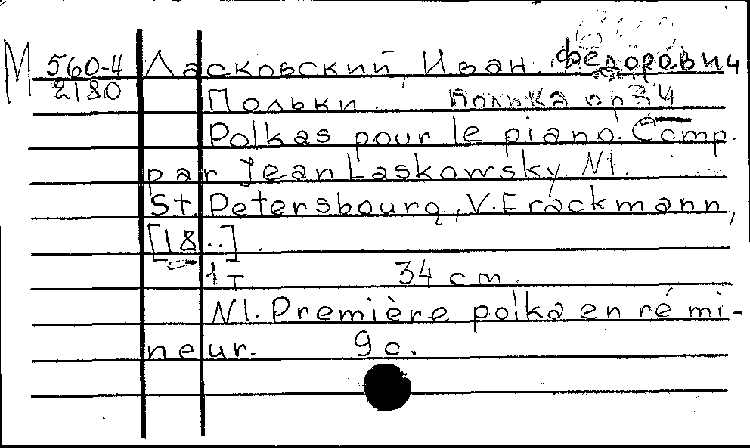 М 560-4 Ласковский, Иван Федорович
2180 Польки полька ор 34
Polkas pour le piano. Comp.
par Jean Laskowsky N1.
St. Petersbourg, V. Frackmann,
[18..]
1 т 34 cm.
N1. Première polka en ré mi-
neur. 9 с.